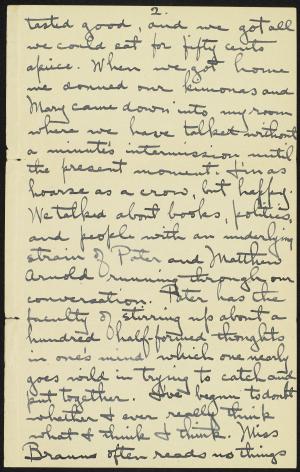 2.
tasted good, and we got all
we could eat for fifty cents
apiece. When we got home
we donned our kimonas and
Mary came down into my room
where we have talked without
a minute's intermission until
the present moment. I'm as
hoarse as a crow, but happy.
We talked about books, politics,
and people with an underlying
strain of Pater and Matthew
Arnold running through our
conversation. Pater has the
faculty of stirring up about a
hundred half-formed thoughts
in one's mind which one nearly
goes wild in trying to catch and
put together. I've begun to doubt
whether I ever really think
what I think I think. Miss
Brauns often reads us things